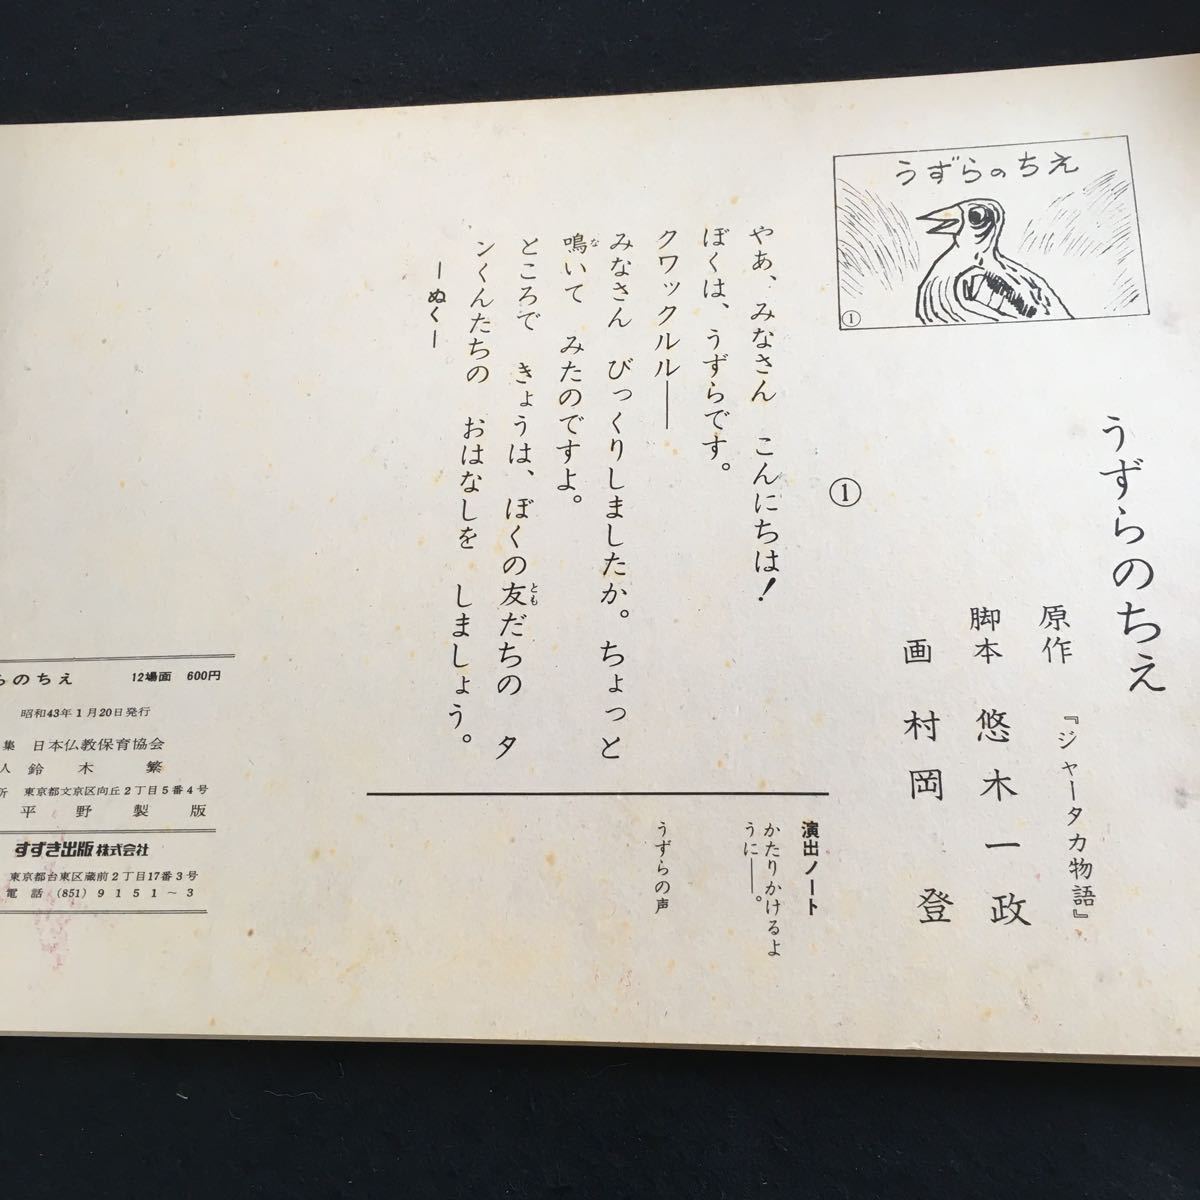 うずらのちえ
①
うずらのちえ
原作 『ジャータカ物語』
脚本 悠木一政
画 村岡登
①
やあ、みなさん こんにちは!
ぼくは、うずらです。
クワックルル――
みなさん びっくりしましたか。ちょっと
鳴いて みたのですよ。
な
ところで きょうは、ぼくの友だちの タ
とも
ンくんたちの おはなしを しましょう。
―ぬく―
演出ノート
かたりかけるよ
うに――。
うずらの声
らのちえ 12場面 600円
昭和43年1月20日発行
集 日本仏教保育協会
人 鈴木繁
所 東京都文京区向丘2丁目5番4号
平野製版
すずき出版株式会社
東京都台東区蔵前2丁目17番3号
電話 (851) 9151~3